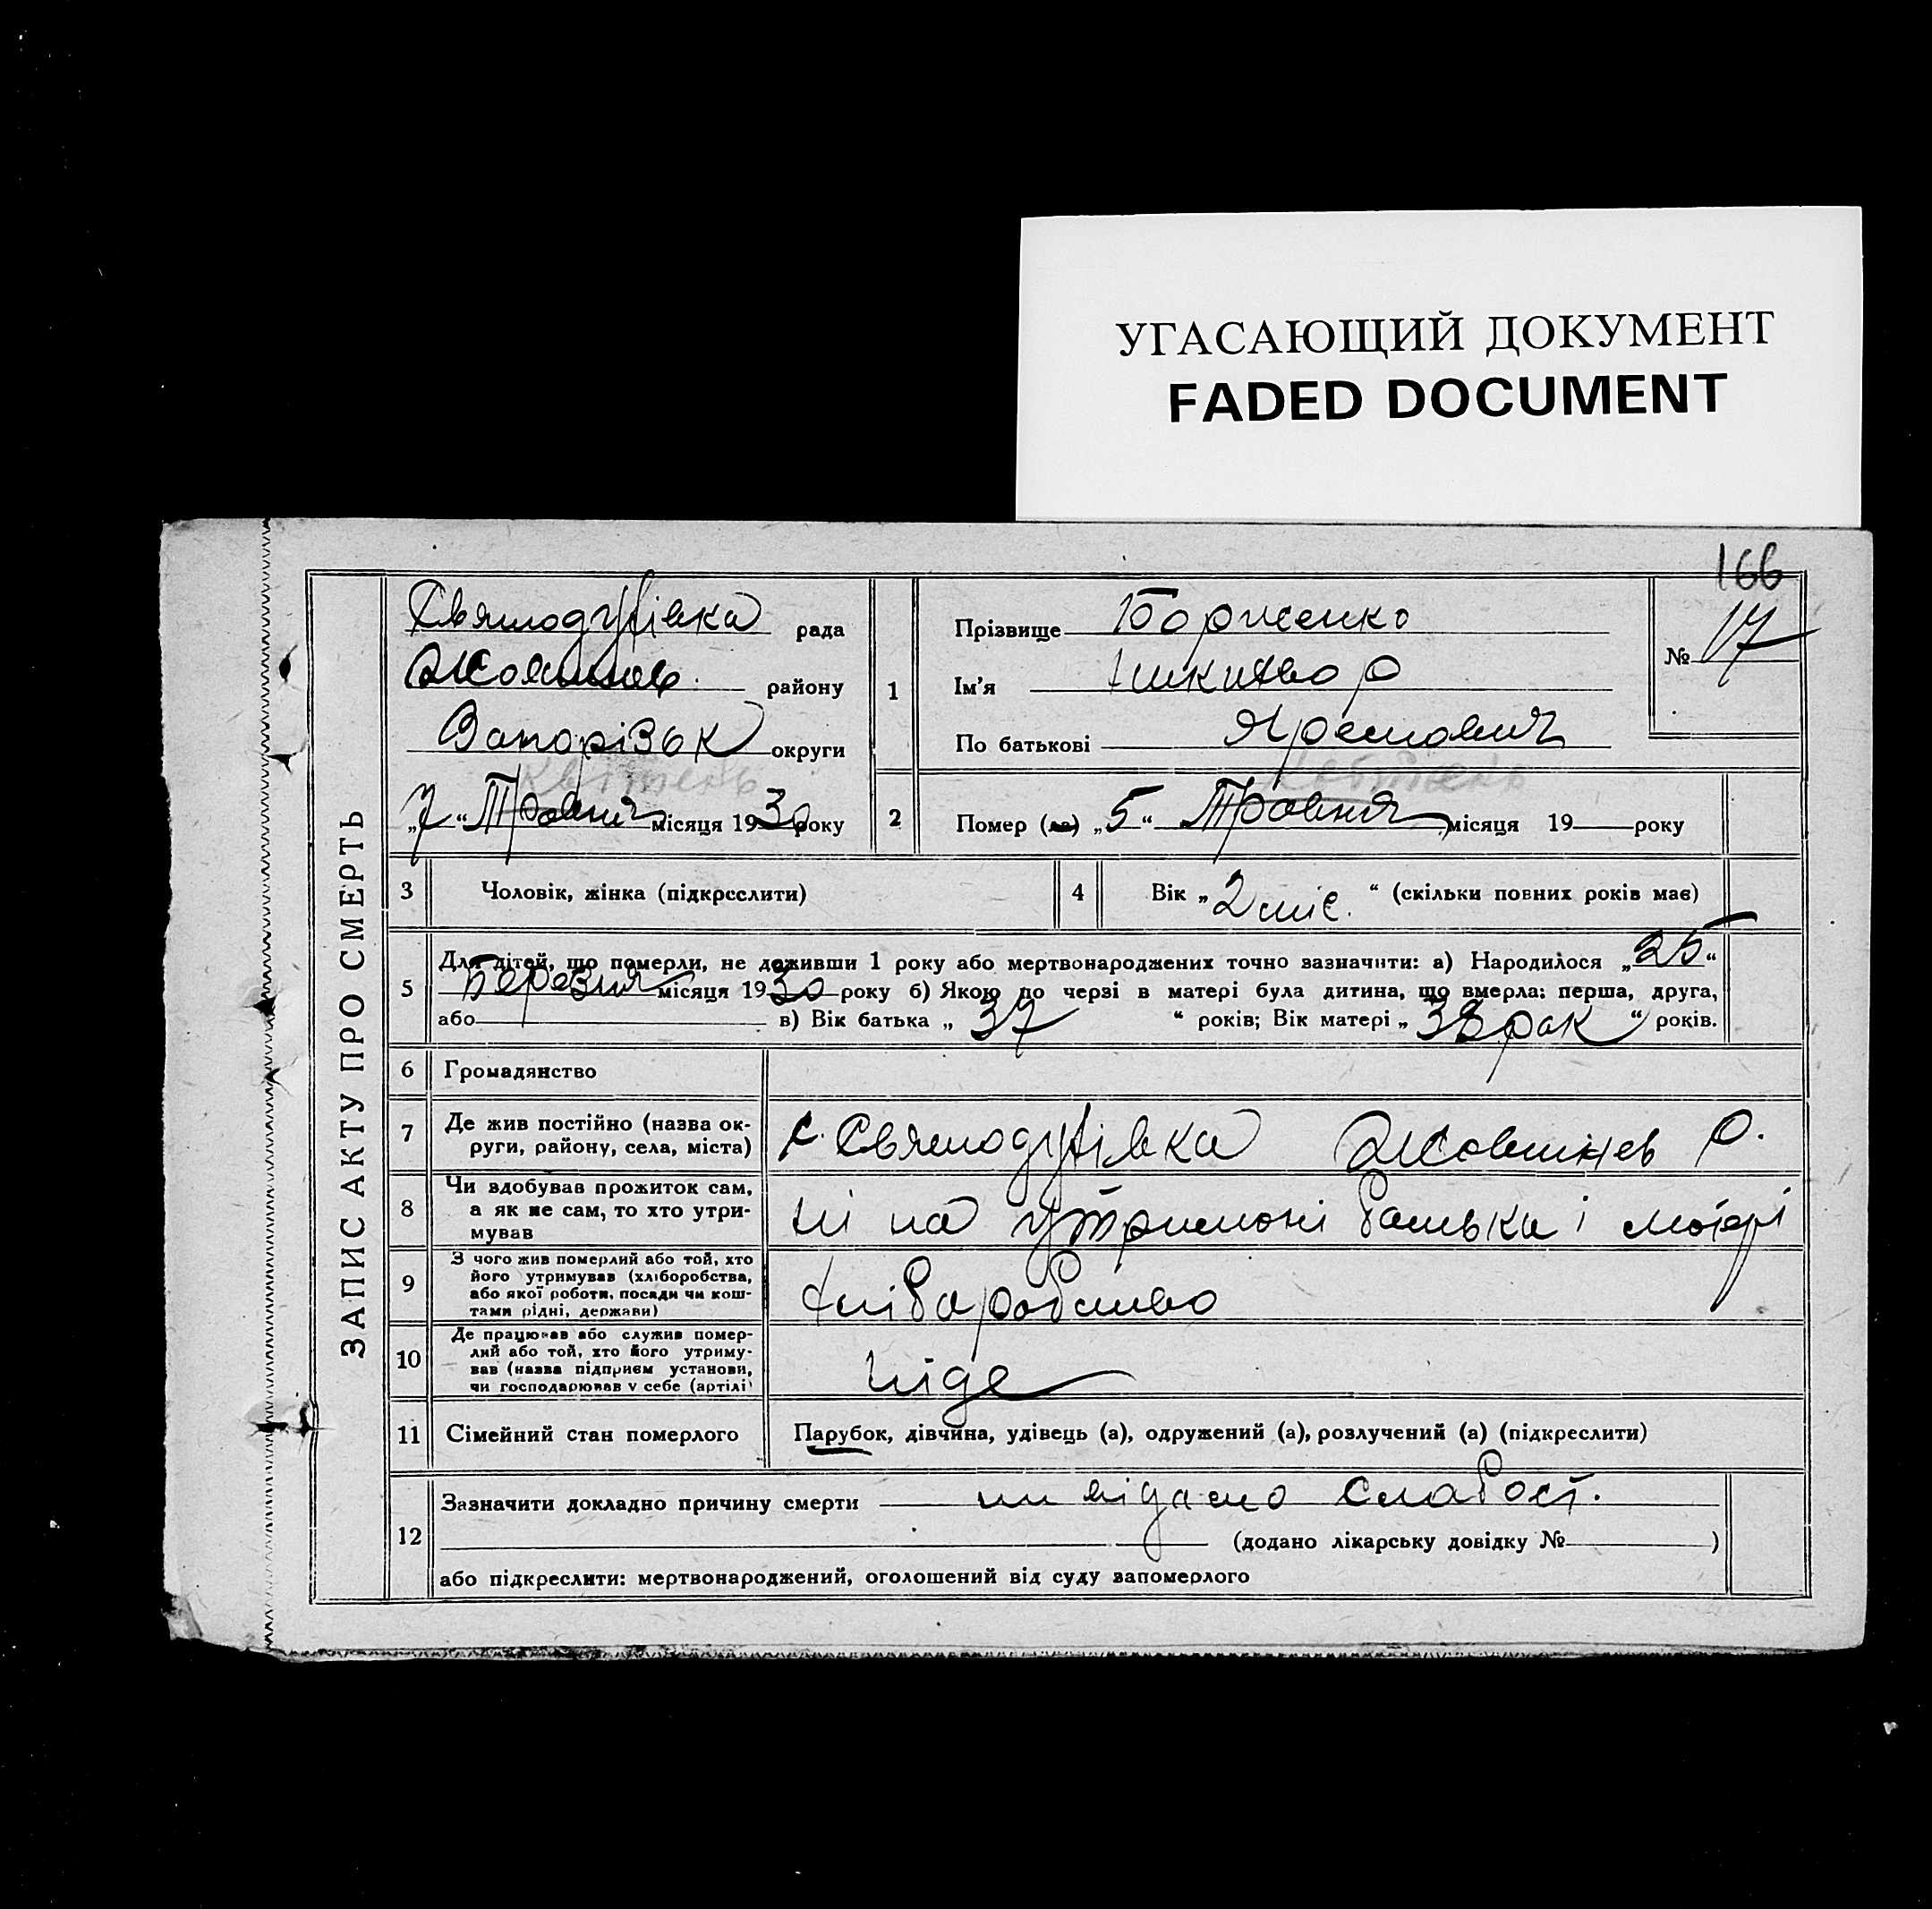 УГАСАЮЩИЙ ДОКУМЕНТ
FADED DOCUMENT
166
ЗАПИС АКТУ ПРО СМЕРТЬ
Святодухівка рада
району
Запорізьк округи
Квітень
„7“ Травня місяця 1930 року
1
Прізвище Борженко
Ім’я
По батькові
№ 17
2
Помер (ла) „5“ Травня місяця 19 року
3 Чоловік, жінка (підкреслити)
4 Вік „2 міс.“ (скільки повних років має)
5 Для дітей, що померли, не доживши 1 року або мертвонароджених точно зазначити: а) Народилося „25“
Березня місяця 1930 року б) Якою по черзі в матері була дитина, що вмерла: перша, друга,
або в) Вік батька „37“ років; Вік матері „38 рок“ років.
6 Громадянство
7 Де жив постійно (назва ок-
руги, району, села, міста)
с. Святодухівка Жовтнев р.
8 Чи вдобував прожиток сам,
а як не сам, то хто утри-
мував
ні на утримоні батька і матері
9 З чого жив померлий або той, хто
його утримував (хліборобства,
або якої роботи, посади чи кош-
тами рідні, держави)
10 Де працював або служив помер-
лий або той, хто його утриму-
вав (назва підприєм установи,
чи господарював у себе (артілі)
ніде
11 Сімейний стан померлого
Парубок, дівчина, удівець (а), одружений (а), розлучений (а) (підкреслити)
12 Зазначити докладно причину смерти
(додано лікарську довідку № )
або підкреслити: мертвонароджений, оголошений від суду запомерлого